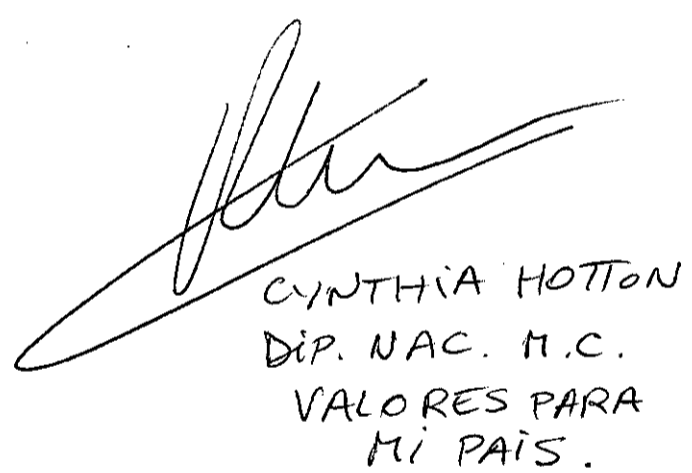 CYNTHIA HOTTON
DIP. NAC. M.C.
VALORES PARA
MI PAIS.